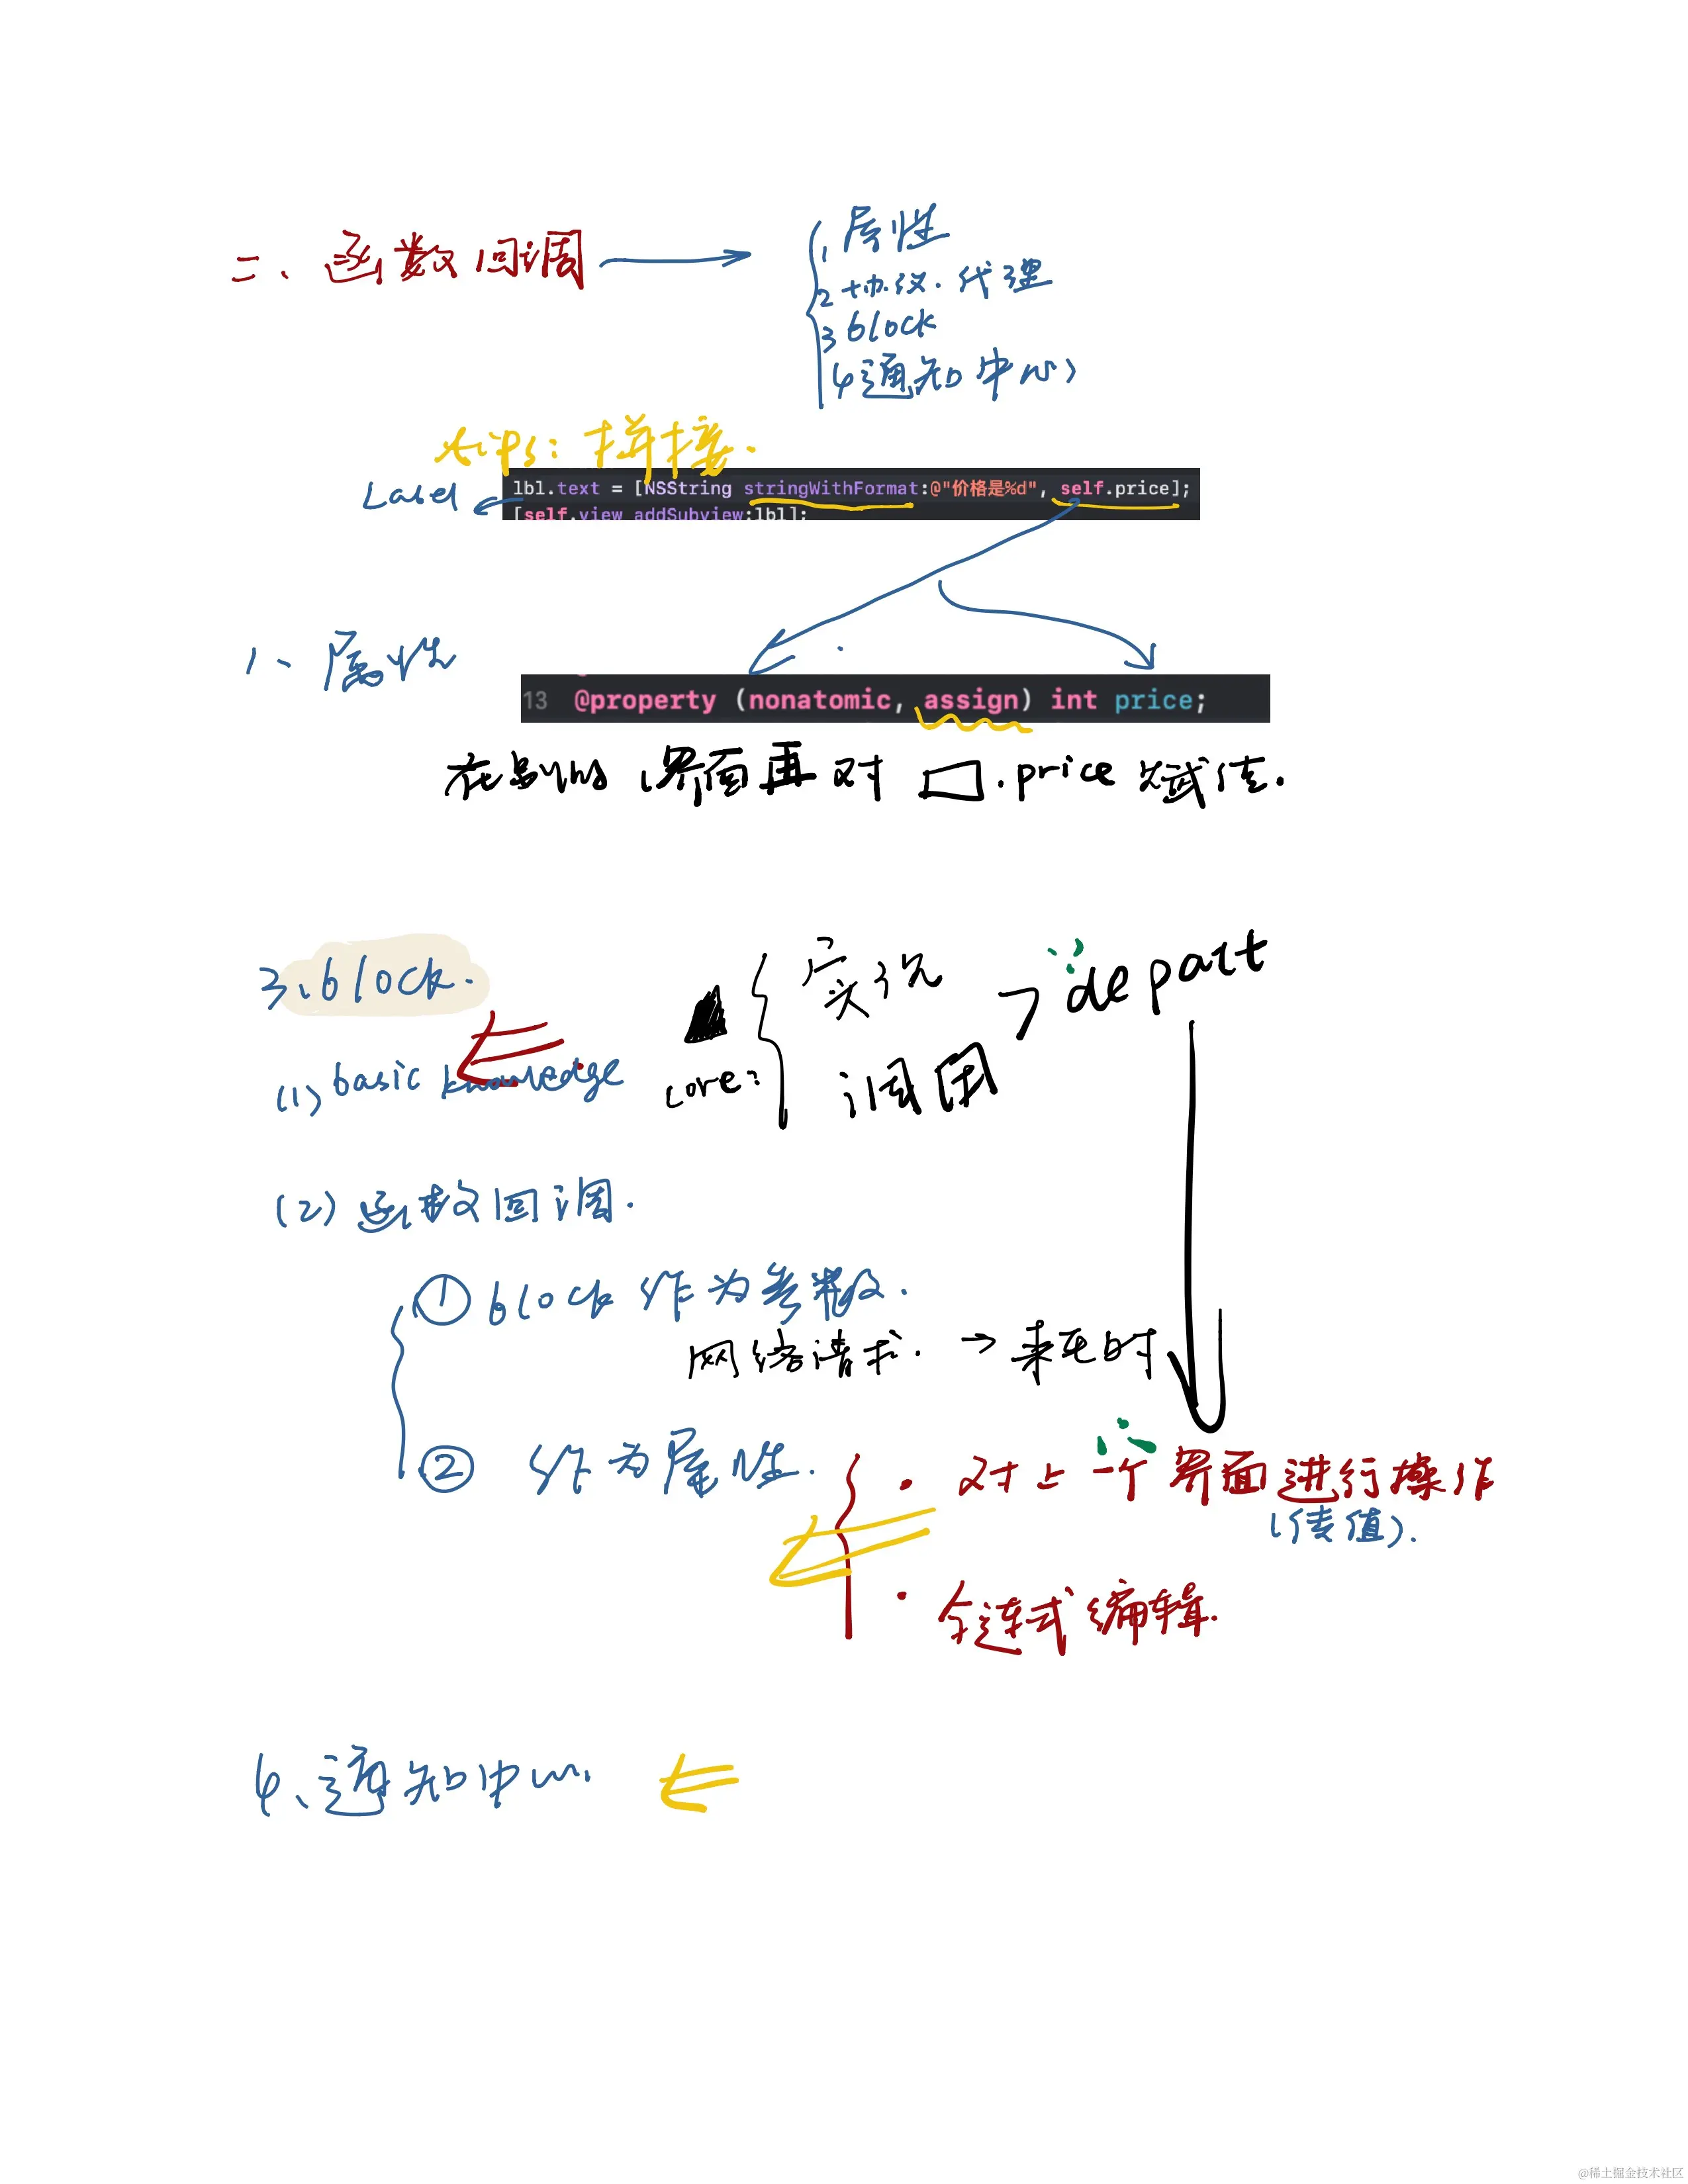 二、函数回调
1 属性
2 协议.代理
3 block
4 通知中心
tips: 拼接.
Label
lbl.text = [NSString stringWithFormat:@"价格是%d", self.price];
[self.view addSubview:lbl];
1、属性
13 @property (nonatomic, assign) int price;
在别的界面再对 .price 赋值.
3、block.
(1) basic knowledge
core:
实现
调用
depart
(2) 函数回调.
① block 作为参数.
网络请求. → 耗时
② 作为属性.
· 对上一个界面进行操作
(传值).
· 链式编辑.
4、通知中心.
@稀土掘金技术社区